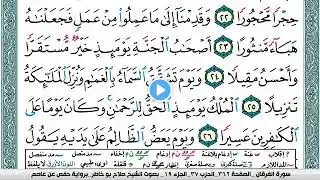 حِجْرًا مَّحْجُورًا ٢٢ وَقَدِمْنَآ إِلَىٰ مَا عَمِلُوا۟ مِنْ عَمَلٍ فَجَعَلْنَٰهُ
هَبَآءً مَّنثُورًا ٢٣ أَصْحَٰبُ ٱلْجَنَّةِ يَوْمَئِذٍ خَيْرٌ مُّسْتَقَرًّا
وَأَحْسَنُ مَقِيلًا ٢٤ وَيَوْمَ تَشَقَّقُ ٱلسَّمَآءُ بِٱلْغَمَٰمِ وَنُزِّلَ ٱلْمَلَٰٓئِكَةُ
تَنزِيلًا ٢٥ ٱلْمُلْكُ يَوْمَئِذٍ ٱلْحَقُّ لِلرَّحْمَٰنِ وَكَانَ يَوْمًا عَلَى
ٱلْكَٰفِرِينَ عَسِيرًا ٢٦ وَيَوْمَ يَعَضُّ ٱلظَّالِمُ عَلَىٰ يَدَيْهِ يَقُولُ
سورة الفرقان، الصفحة ٣٦٢، الحزب ٣٧، الجزء ١٩ - بصوت الشيخ صلاح بو خاطر - برواية حفص عن عاصم